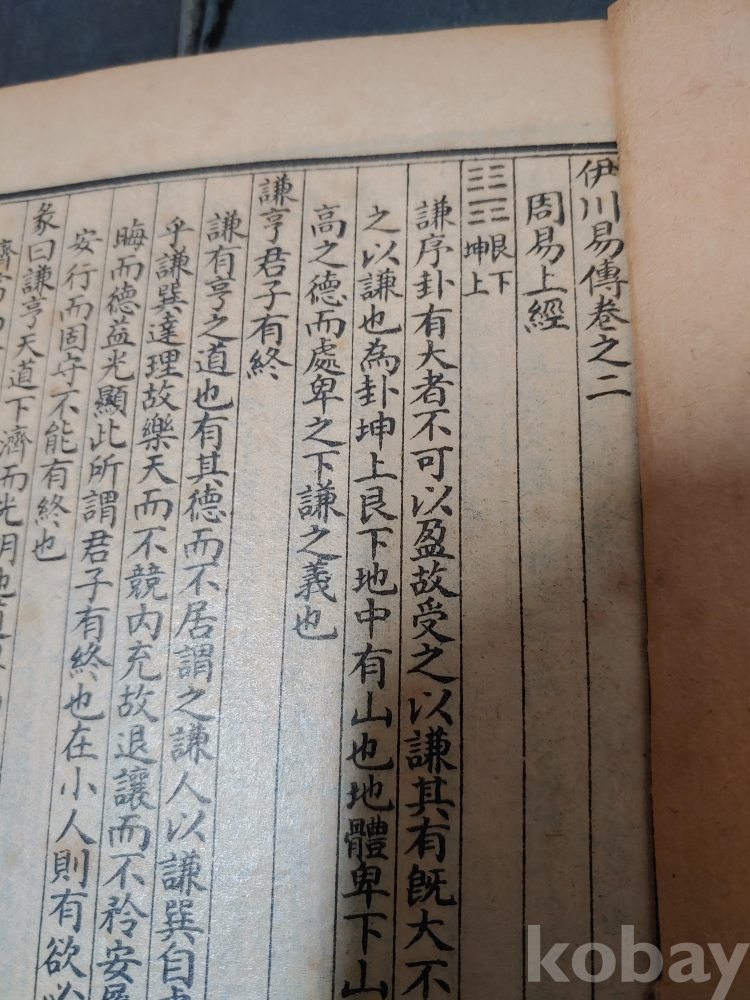 伊川易傳卷之二
周易上經
艮下
坤上
謙序卦有大者不可以盈故受之以謙其有旣大不
之以謙也為卦坤上艮下地中有山也地體卑下山
高之德而處卑之下謙之義也
謙亨君子有終
謙有亨之道也有其德而不居謂之謙人以謙巽自
乎謙巽達理故樂天而不競內充故退讓而不矜安
晦而德益光顯此所謂君子有終也在小人則有欲必
安行而固守不能有終也
彖曰謙亨天道下濟而光明地
kobay